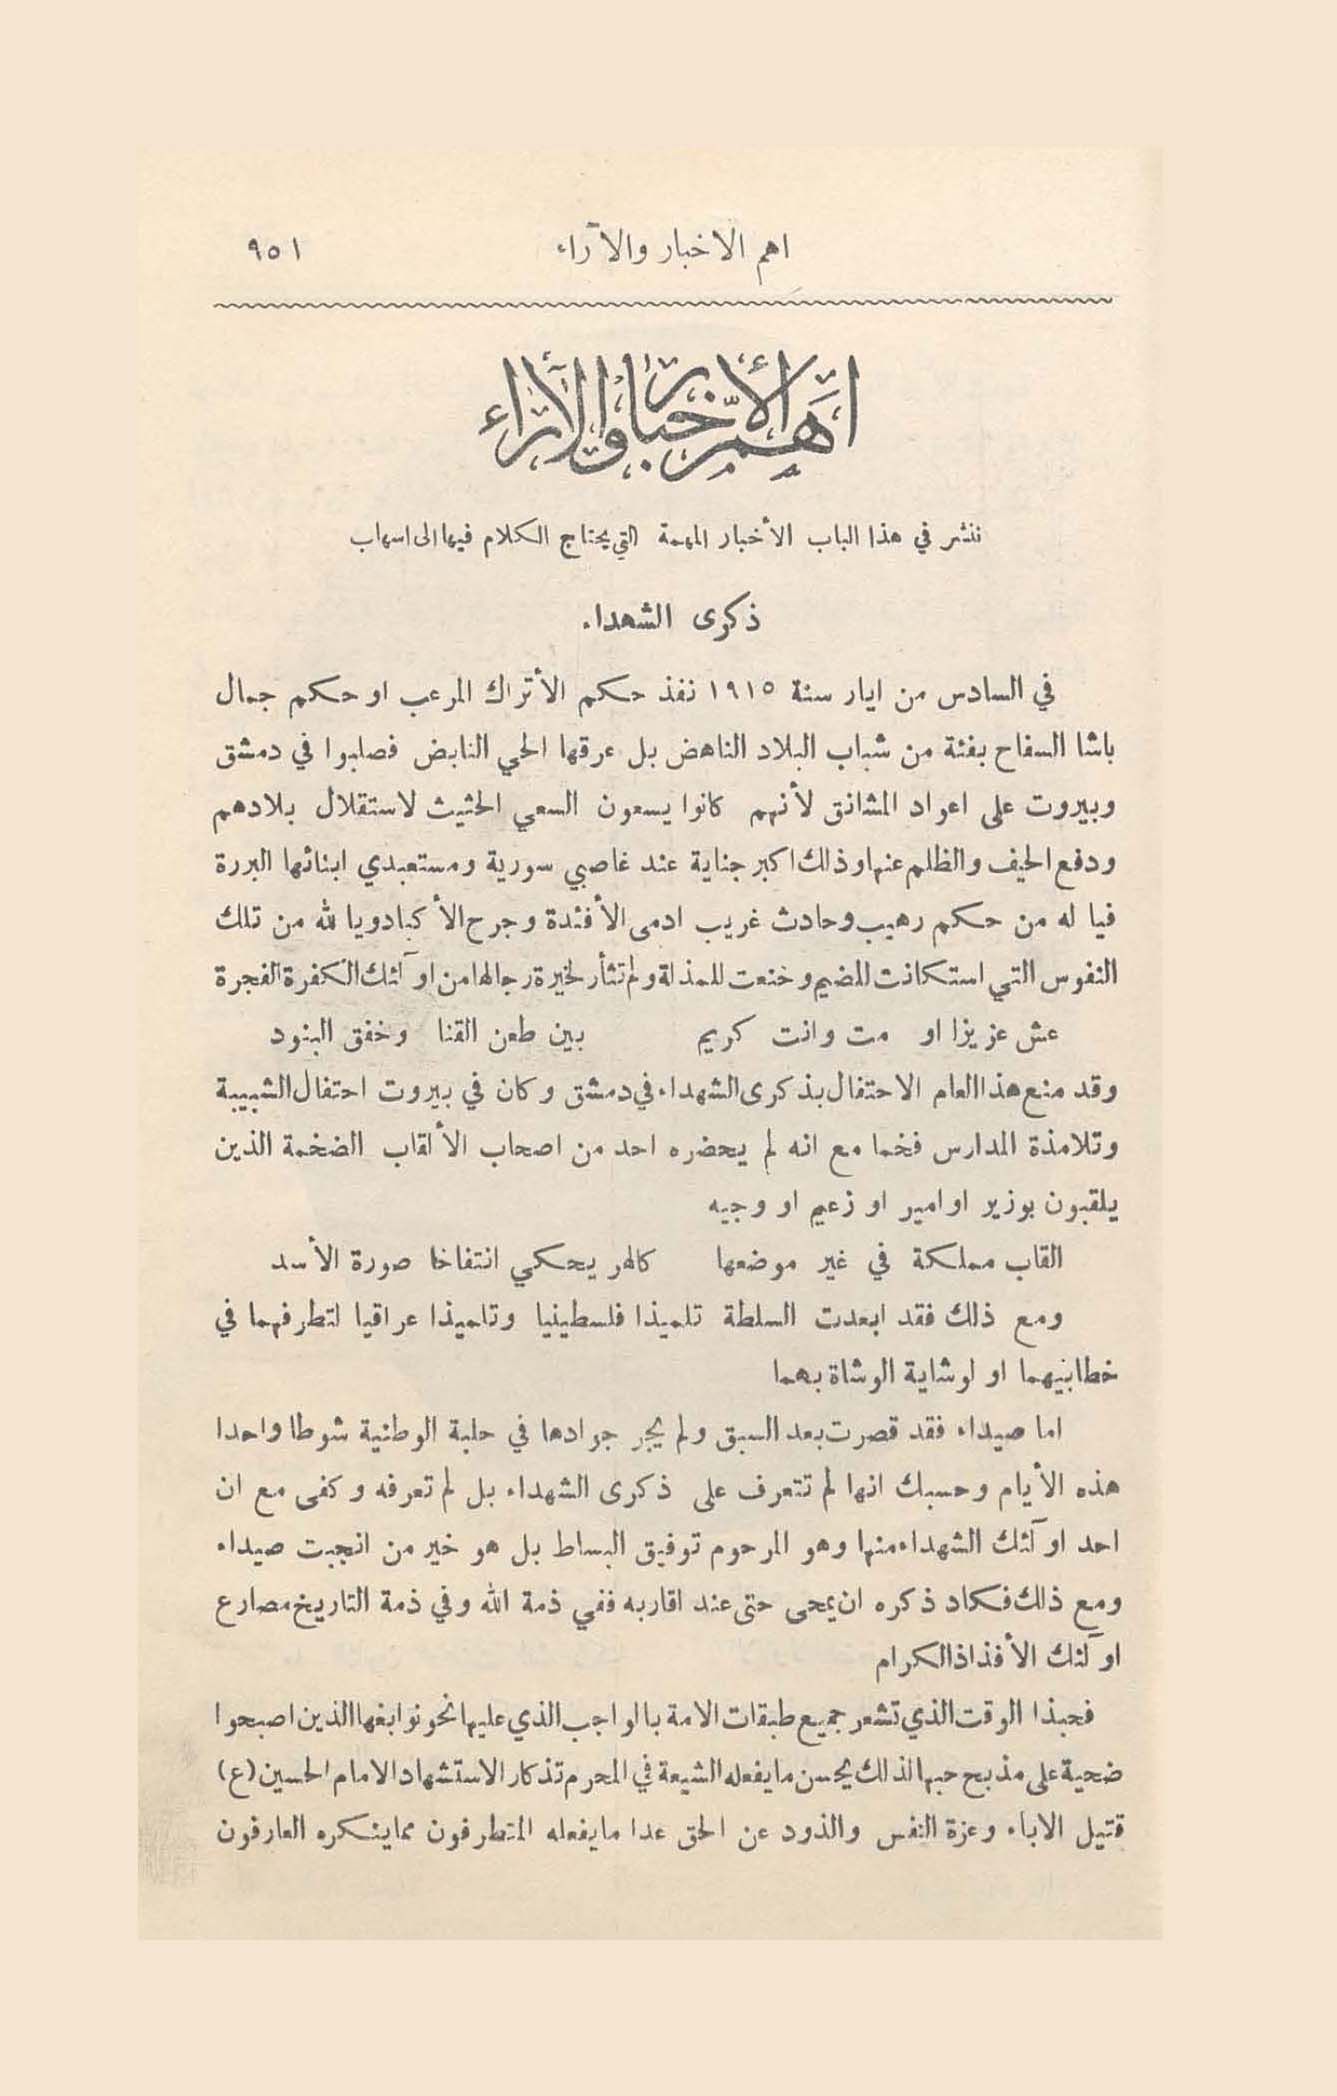 اهم الاخبار والآراء ٩٥١
أهم الأخبار والآراء
ننشر في هذا الباب الأخبار المهمة التي يحتاج الكلام فيها الى اسهاب
ذكرى الشهداء
في السادس من ايار سنة ١٩١٥ نفذ حكم الأتراك المرعب او حكم جمال
باشا السفاح بفئة من شباب البلاد الناهض بل عرقها الحي النابض فصلبوا في دمشق
وبيروت على اعواد المشانق لأنهم كانوا يسعون السعي الحثيث لاستقلال بلادهم
ودفع الحيف والظلم عنها وذلك اكبر جناية عند غاصبي سورية ومستعبدي ابنائها البررة
فيا له من حكم رهيب وحادث غريب ادمى الأفئدة وجرح الأكباد ويا لله من تلك
النفوس التي استكانت للضيم وخنعت للمذلة ولم تثأر لخيرة رجالها من اولئك الكفرة الفجرة
عش عزيزا او مت وانت كريم بين طعن القنا وخفق البنود
وقد منع هذا العام الاحتفال بذكرى الشهداء في دمشق وكان في بيروت احتفال الشبيبة
وتلامذة المدارس فخما مع انه لم يحضره احد من اصحاب الألقاب الضخمة الذين
يلقبون بوزير او امير او زعيم او وجيه
القاب مملكة في غير موضعها كالهر يحكي انتفاخا صورة الأسد
ومع ذلك فقد ابعدت السلطة تلميذا فلسطينيا وتلميذا عراقيا لتطرفهما في
خطابيهما او لوشاية الوشاة بهما
اما صيداء فقد قصرت بعد السبق ولم يجر جوادها في حلبة الوطنية شوطا واحدا
هذه الأيام وحسبك انها لم تتعرف على ذكرى الشهداء بل لم تعرفه وكفى مع ان
احد اولئك الشهداء منها وهو المرحوم توفيق البساط بل هو خير من انجبت صيداء
ومع ذلك فكاد ذكره ان يمحى حتى عند اقاربه ففي ذمة الله وفي ذمة التاريخ مصارع
اولئك الأفذاذ الكرام
فحبذا الوقت الذي تشعر جميع طبقات الامة بالواجب الذي عليها نحو نوابغها الذين اصبحوا
ضحية على مذبح حبها لذلك يحسن ما يفعله الشيعة في المحرم تذكار الاستشهاد الامام الحسين (ع)
قتيل الاباء وعزة النفس والذود عن الحق عدا ما يفعله المتطرفون مما ينكره العارفون